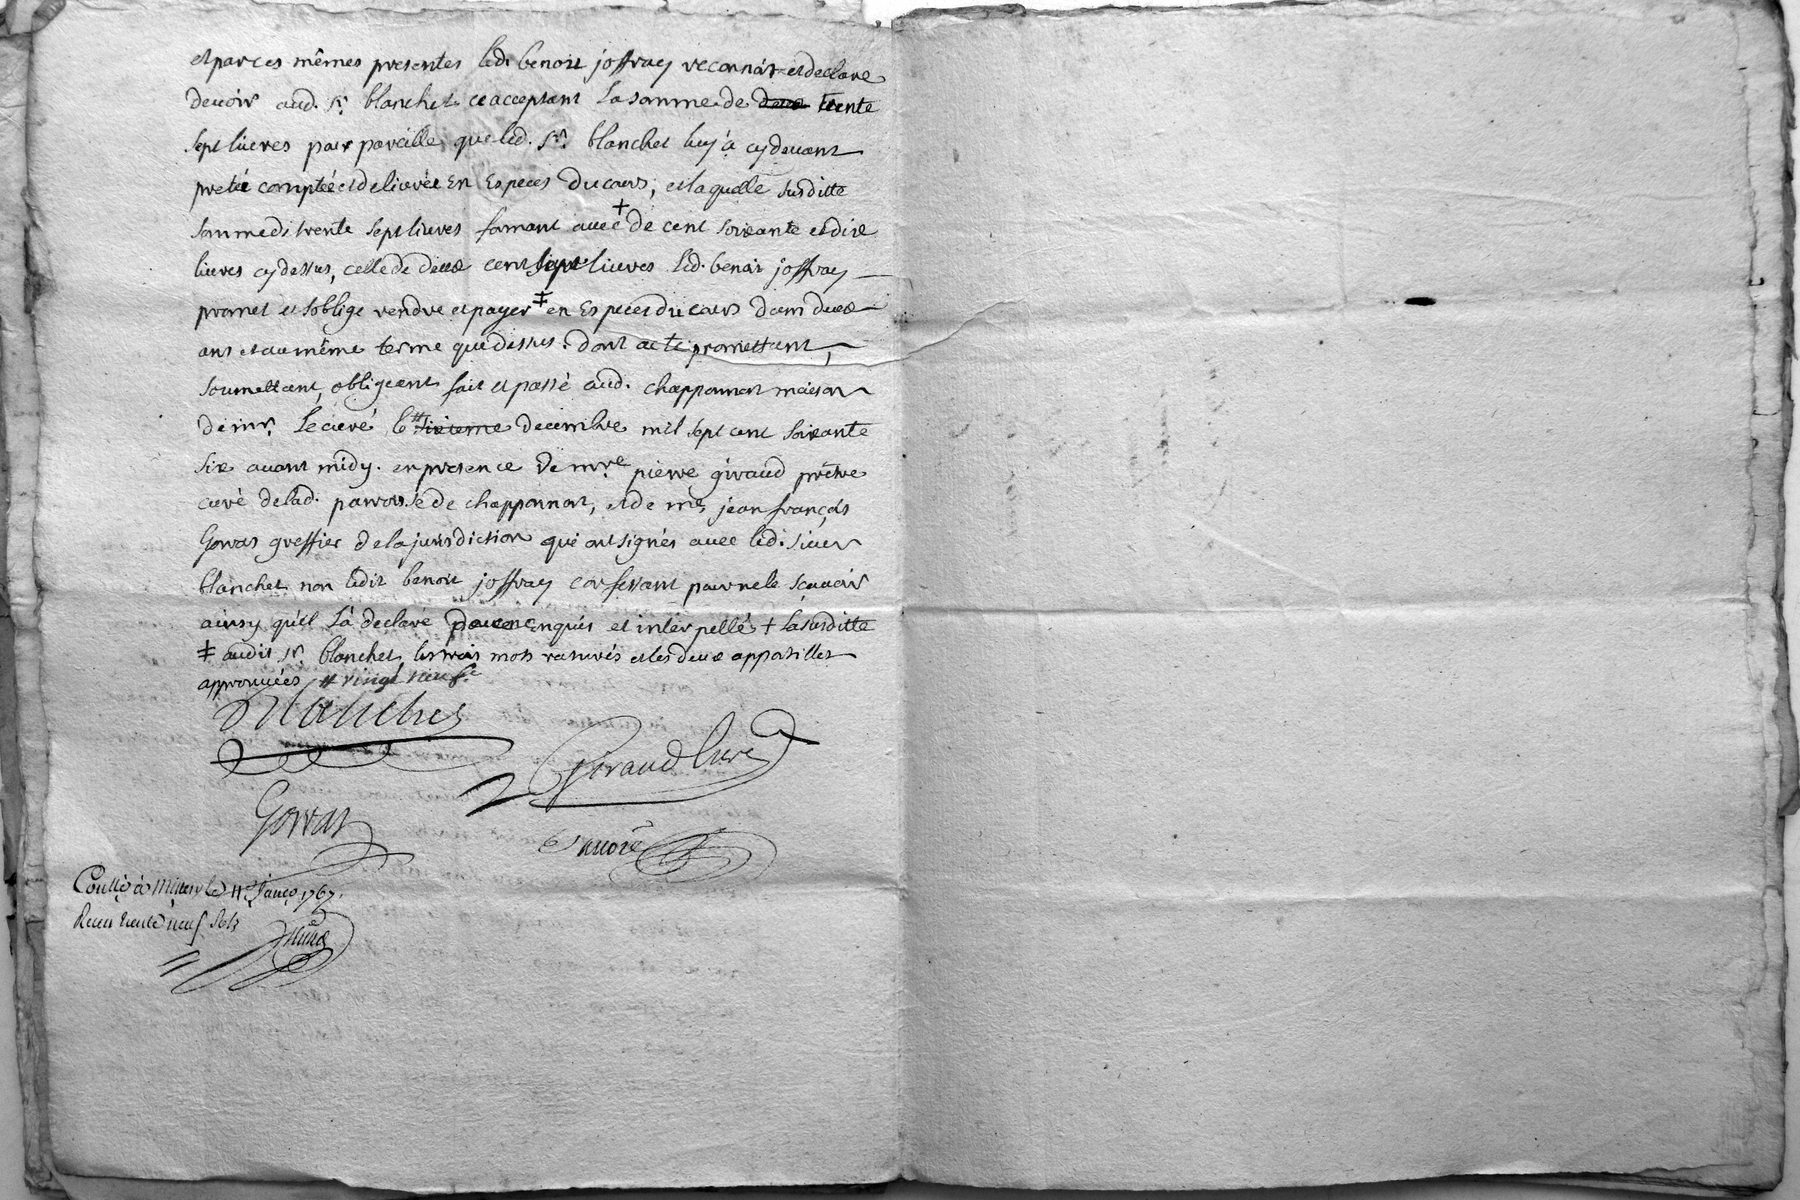 et par ces mêmes presentes led. benoit joffray reconnais et declare
devoir aud. sr. blanchet ce acceptant la somme de deux trente
sept livres pour pareille que led. sr. blanchet luy à cy devant
preteé comptée et delivrée en especes du cours, et laquelle susditte
somme de trente sept livres formant avec + de cent soixante et dix
livres cy dessus, celle de deux cent sept livres led. benoit joffray
promet et s'oblige rendre et payer ‡ en especes du cours dans deux
ans et au même terme que dessus. dont acte promettant,
soumettant, obligeant fait et passé aud. chapponnost maison
de mr. le curé le # sixieme decembre mil sept cent soixante
six avant midy. en presence de mre. pierre giraud prêtre
curé de lad. parroisse de chapponnost, et de me jean françois
Gorras greffier de la jurisdiction qui ont signés avec led. sieur
blanchet non ledit benoit joffray confessant pour ne le sçavoir
ainsy qu'il l'à declaré de ce enquis et interpellé + la susditte
‡ audit sr. blanchet les trois mots raturés et les deux appostilles
approuvées # vingt neuf.e
Blanchet
Giraud Curé
Gorras
Conllé à Millery le 11e Janvr 1767.
Receu trente neuf sols